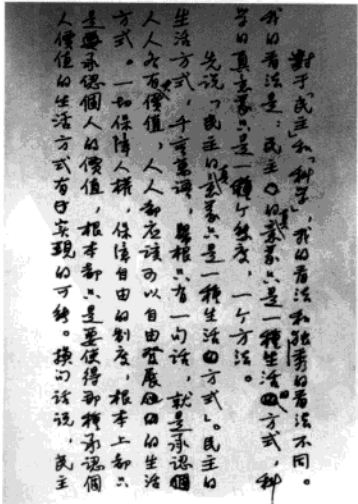 對于「民主」和「科学」，我的看法和独秀的看法不同。
我的看法是：民主的真意義只是一種生活的方式，科
学的真意義只是一種个態度，一个方法。
先说「民主的真意義只是一種生活的方式」。民主的
生活方式，千言萬語，歸根只有一句话，就是承認個
人人各有價值，人人都应該可以自由發展的生活
方式。一切保障人權，保障自由的制度，根本上都只
是要承認個人的價值，根本都只是要使得那種承認個
人價值的生活方式有实現的可能。換句话说，民主